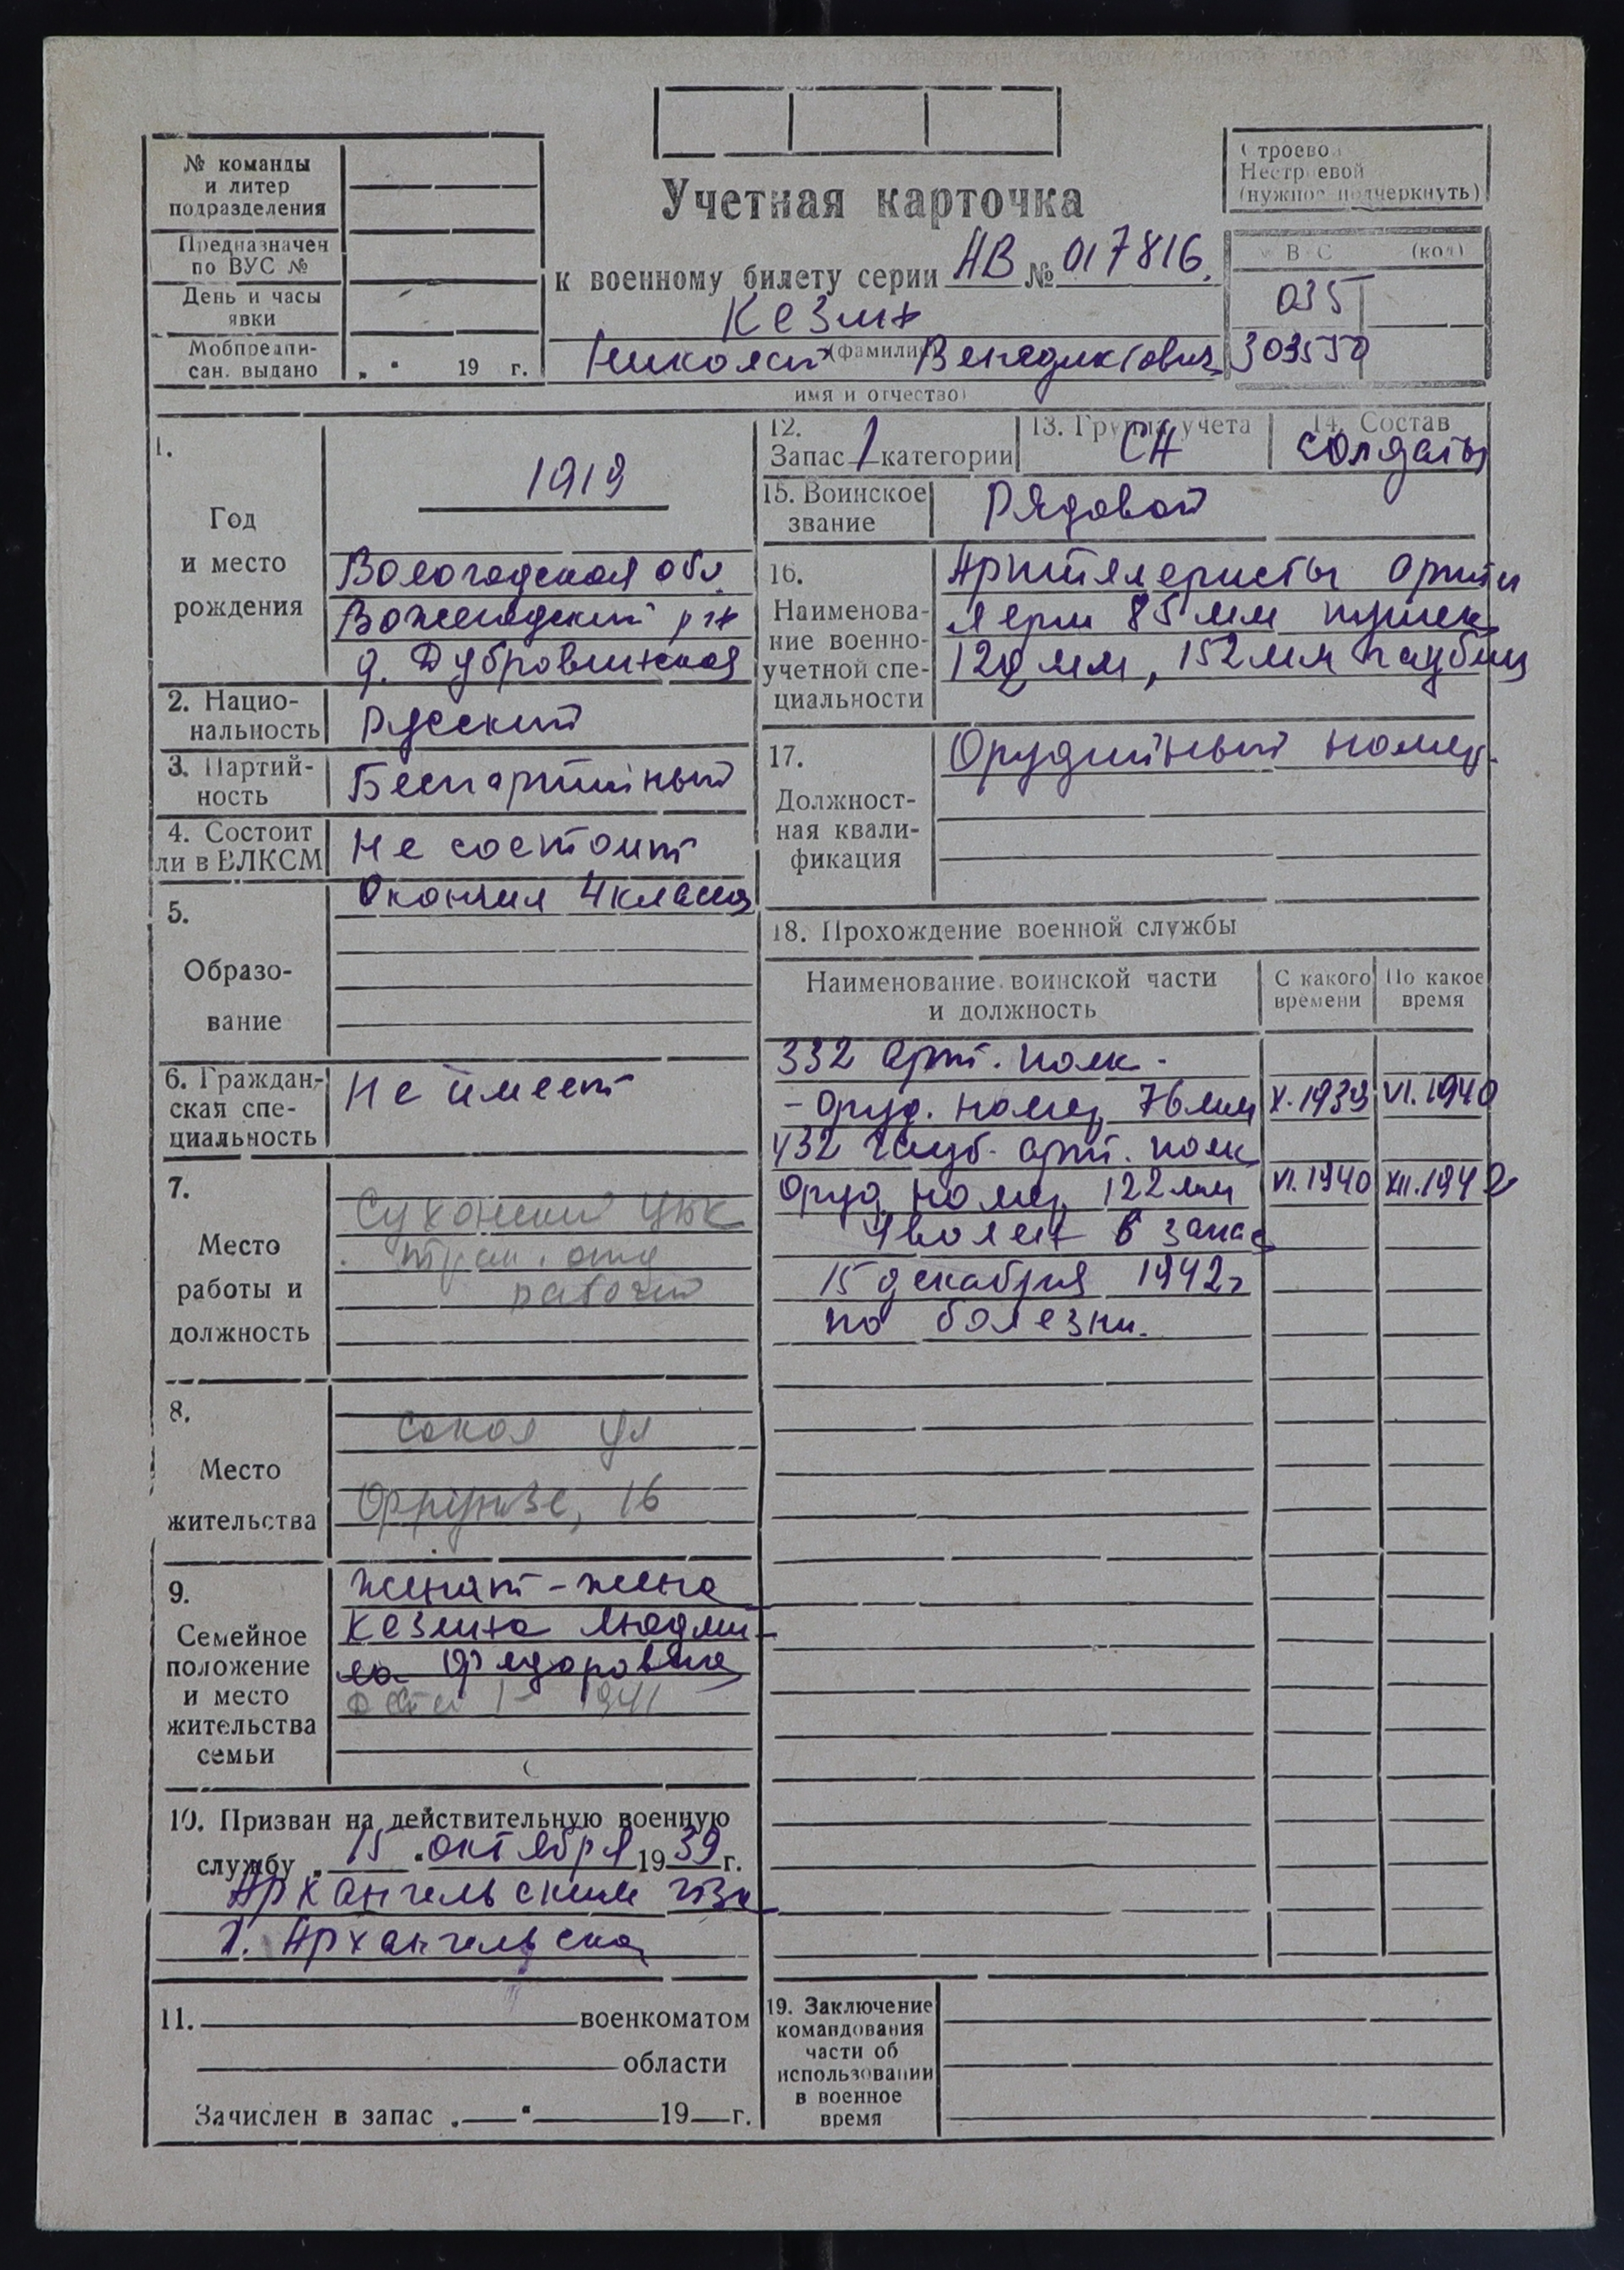 № команды
и литер
подразделения
Предназначен
по ВУС №
День и часы
явки
Мобпредпи-
сан. выдано „ “ 19 г.
Учетная карточка
к военному билету серии АВ № 017816.
Кезин
(фамилия)
Николай Венедиктович
имя и отчество)
Строевой
Нестроевой
(нужное подчеркнуть)
ВУС (код)
035
303550
1.
Год
и место
рождения
1919
Вологодская обл.
Вожегодский р-н
д. Дубровинская
2. Нацио-
нальность Русский
3. Партий-
ность Беспартийный
4. Состоит
ли в ВЛКСМ Не состоит
5.
Образо-
вание
Окончил 4 класса
6. Граждан-
ская спе-
циальность
Не имеет
7.
Место
работы и
должность
Сухонский ЦБК
рабочий
8.
Место
жительства
Сокол ул
Фрунзе, 16
9.
Семейное
положение
и место
жительства
семьи
женат - жена
Кезина Людми-
ла Федоровна
дети 1 - 1941
10. Призван на действительную военную
службу „ 15 “ октября 19 39 г.
Архангельским ГВК
г. Архангельска
11. военкоматом
области
Зачислен в запас „ “ 19 г.
12.
Запас 1 категории
13. Группа учета
СА
14. Состав
солдаты
15. Воинское
звание Рядовой
16.
Наименова-
ние военно-
учетной спе-
циальности
Артиллеристы арти
лерии 85 мм пушек
122 мм, 152 мм гаубиц
17.
Должност-
ная квали-
фикация
Орудийный номер.
18. Прохождение военной службы
Наименование воинской части
и должность
С какого
времени
По какое
время
332 арт. полк -
- оруд. номер 76 мм X.1939 VI.1940
432 гауб. арт. полк
оруд номер 122 мм VI.1940 XII.1942
Уволен в запас
15 декабря 1942 г
по болезни.
19. Заключение
командования
части об
использовании
в военное
время